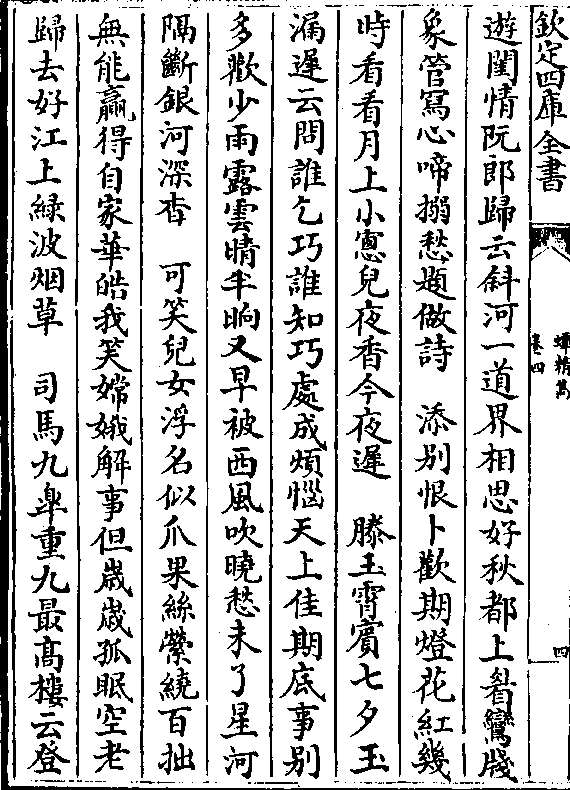 欽定四庫全書
蟫精雋
卷四
四
遊閨情阮郎歸云斜河一道界相思好秋都上眉鸞牋
象管寫心啼搦愁題做詩　添别恨卜歡期燈花紅幾
時看看月上小窻兒夜香今夜遲　滕玉霄賓七夕玉
漏遲云問誰乞巧誰知巧處成煩惱天上佳期底事别
多歡少雨露雲晴半晌又早被西風吹曉愁未了星河
隔斷銀河深杳　可笑兒女浮名似爪果絲縈繞百拙
無能贏得自家華皓我笑嫦娥解事但歲歲孤眠空老
歸去好江上綠波烟草　司馬九臯重九最髙樓云登